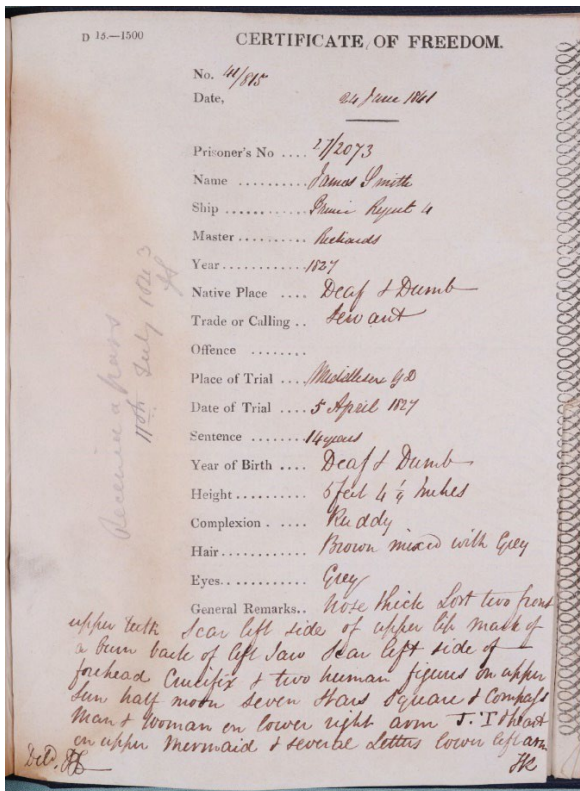 D 15.—1500
CERTIFICATE OF FREEDOM.
No. 41/815
Date, 24 June 1841
Prisoner's No .... 27/2073
Name .......... James Smith
Ship ........... Prince Regent 4
Master .......... Richards
Year ............ 1827
Native Place .... Deaf & Dumb
Trade or Calling .. Servant
Offence ........
Place of Trial ... Middlesex GD
Date of Trial .... 5 April 1827
Sentence ........ 14 years
Year of Birth .... Deaf & Dumb
Height .......... 5 feet 4 ¼ Inches
Complexion . ..... Ruddy
Hair ............ Brown mixed with Grey
Eyes ............ Grey
General Remarks.. Nose thick Lost two front
upper teeth Scar left side of upper lip mark of
a burn back of left Jaw Scar left side of
forehead Crucifix & two human figures on upper
Sun half moon seven Stars Square & Compass
Man & Woman on lower right arm J.T & heart
on upper Mermaid & several Letters lower left arm
Received a pass
July 1843